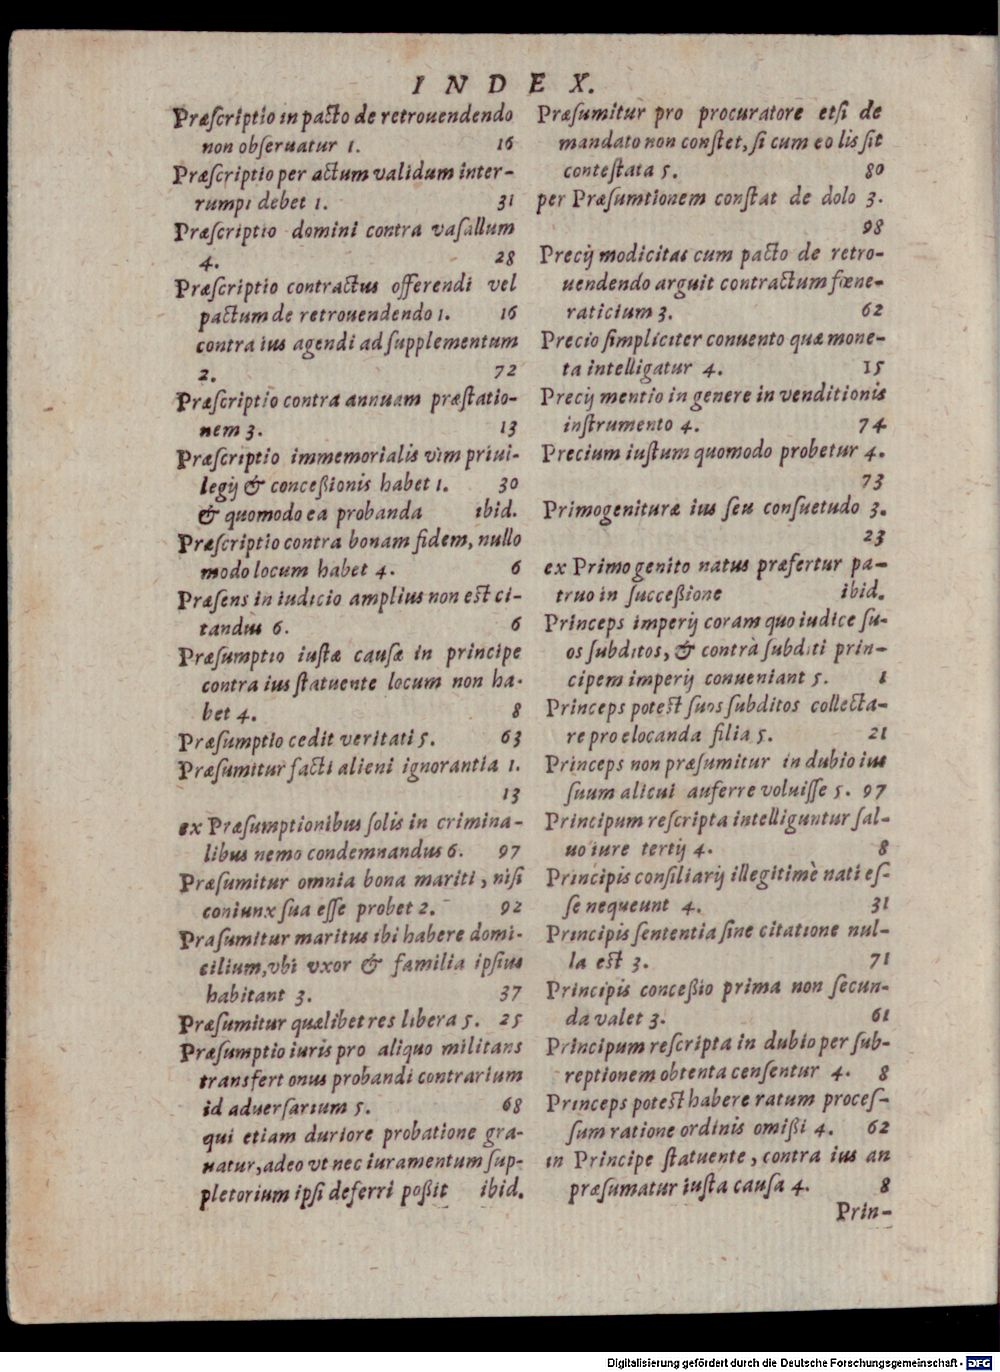 INDEX.
Præſcriptio in pacto de retrouendendo
non obſeruatur 1. 16
Præſcriptio per actum validum inter-
rumpi debet 1. 31
Præſcriptio domini contra vaſallum
4. 28
Præſcriptio contractus offerendi vel
pactum de retrouendendo 1. 16
contra ius agendi ad ſupplementum
2. 72
Præſcriptio contra annuam præſtatio-
nem 3. 13
Præſcriptio immemorialis vim priui-
legij & conceßionis habet 1. 30
& quomodo ea probanda ibid.
Præſcriptio contra bonam fidem, nullo
modo locum habet 4. 6
Præſens in iudicio amplius non est ci-
tandus 6. 6
Præſumptio iustæ cauſæ in principe
contra ius ſtatuente locum non ha-
bet 4. 8
Præſumptio cedit veritati 5. 63
Præſumitur facti alieni ignorantia 1.
13
ex Præſumptionibus ſolis in crimina-
libus nemo condemnandus 6. 97
Præſumitur omnia bona mariti, niſi
coniunx ſua eſſe probet 2. 92
Praſumitur maritus ibi habere domi-
cilium, vbi vxor & familia ipſius
habitant 3. 37
Præſumitur quælibet res libera 5. 25
Præſumptio iuris pro aliquo militans
transfert onus probandi contrarium
id aduerſarium 5. 68
qui etiam duriore probatione gra-
uatur, adeo vt nec iuramentum ſup-
pletorium ipſi deferri poßit ibid.
Præſumitur pro procuratore etſi de
mandato non conſtet, ſi cum eo lis ſit
conteſtata 5. 80
per Præſumtionem conſtat de dolo 3.
98
Precij modicitas cum pacto de retro-
uendendo arguit contractum fœne-
raticium 3. 62
Precio ſimpliciter conuento quæ mone-
ta intelligatur 4. 15
Precij mentio in genere in venditionis
inſtrumento 4. 74
Precium iuſtum quomodo probetur 4.
73
Primogenituræ ius ſeu conſuetudo 3.
23
ex Primogenito natus præfertur pa-
truo in ſucceßione ibid.
Princeps imperij coram quo iudice ſu-
os ſubditos, & contrà ſubditi prin-
cipem imperij conueniant 5. 1
Princeps potest ſuos ſubditos collecta-
re pro elocanda filia 5. 21
Princeps non præſumitur in dubio ius
ſuum alicui auferre voluiſſe 5. 97
Principum reſcripta intelliguntur ſal-
uo iure tertij 4. 8
Principis conſiliarij illegitimè nati eſ-
ſe nequeunt 4. 31
Principis ſententia ſine citatione nul-
la est 3. 71
Principis conceßio prima non ſecun-
da valet 3. 61
Principum reſcripta in dubio per ſub-
reptionem obtenta cenſentur 4. 8
Princeps potest habere ratum proceſ-
ſum ratione ordinis omißi 4. 62
in Principe ſtatuente, contra ius an
præſumatur iuſta cauſa 4. 8
Prin-
Digitalisierung gefördert durch die Deutsche Forschungsgemeinschaft - DFG